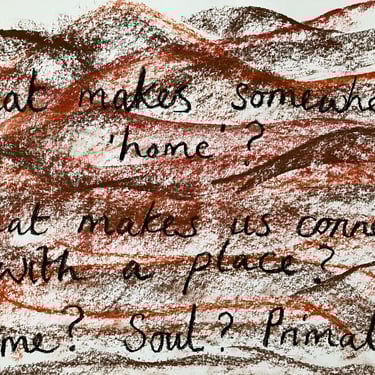 at makes somewhe
'home'?
at makes us conne
with a place?
me? Soul? Primal